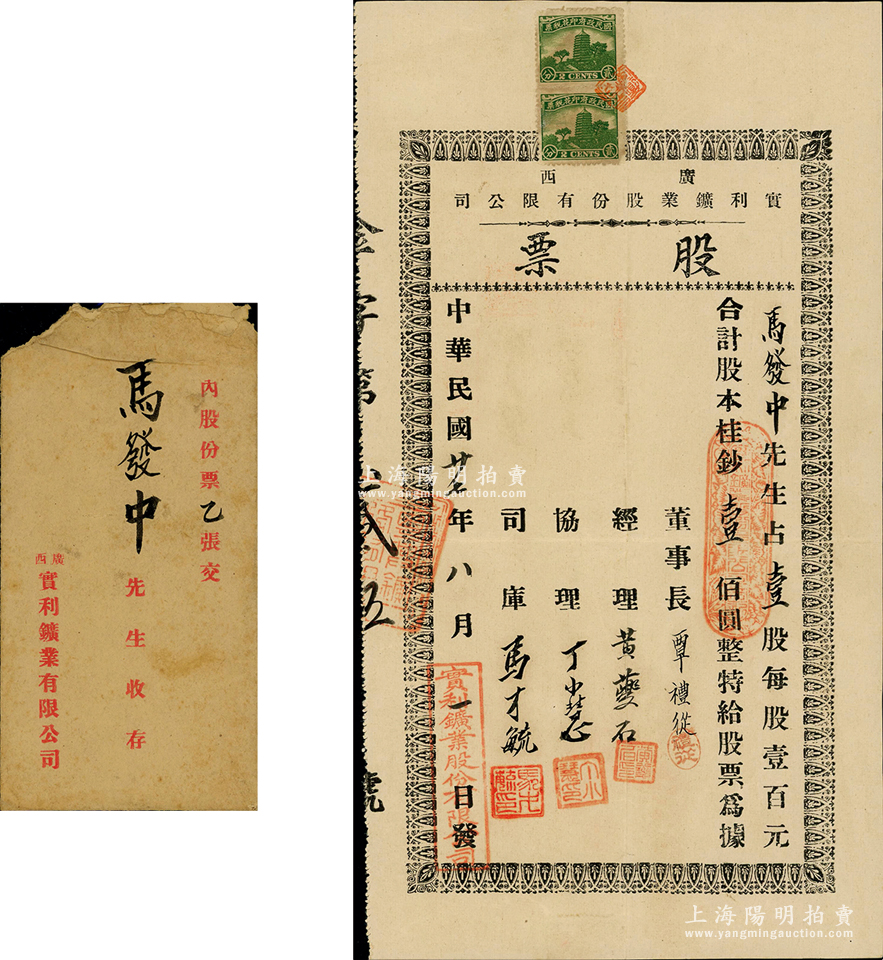 國民政府印花稅票
貳 2 CENTS 分
國民政府印花稅票
貳 2 CENTS 分
廣西
實利鑛業股份有限公司
股票
馬發中先生占壹股每股壹百元
合計股本桂鈔壹佰圓整特給股票爲據
董事長 覃禮從
經理 黃藝石
協理 丁小慧
司庫 馬才毓
中華民國廿年八月一日發
實利鑛業股份有限公司
金字第 貳伍號
內股份票乙張交
馬發中先生收存
廣西
實利鑛業有限公司
上海陽明拍賣
www.yangmingauction.com
上海陽明拍賣
www.yangmingauction.com